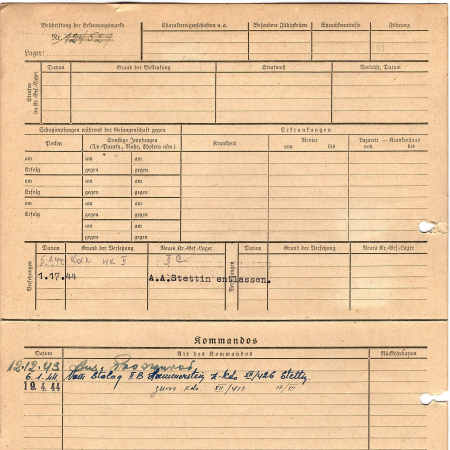 Beschriftung der Erkennungsmarke Charaktereigenschaften u.a. Besondere Fähigkeiten Sprachkenntnisse Führung
Nr. 124527
Lager:
Strafen im Kr.-Gef.-Lager
Datum Grund der Bestrafung Strafmaß Verbüßt, Datum
Schutzimpfungen während der Gefangenschaft gegen Erkrankungen
Pocken Sonstige Impfungen (Ty.-Paraty., Ruhr, Cholera usw.) Krankheit Revier von bis Lazarett — Krankenhaus von bis
am am am
Erfolg gegen gegen
am am am
Erfolg gegen gegen
am am am
Erfolg gegen gegen
am am am
Erfolg gegen gegen
am am
gegen gegen
Versetzungen Datum Grund der Versetzung Neues Kr.-Gef.-Lager Versetzungen Datum Grund der Versetzung Neues Kr.-Gef.-Lager
II C
1.17.44 A.A.Stettin entlassen.
Kommandos
Datum Art des Kommandos Rückkehrdatum
12.12.43
6.1.44 Stalag II B Hammerstein z. Kdo XII/426 Stettin
19.4.44 zum Kdo XII/413